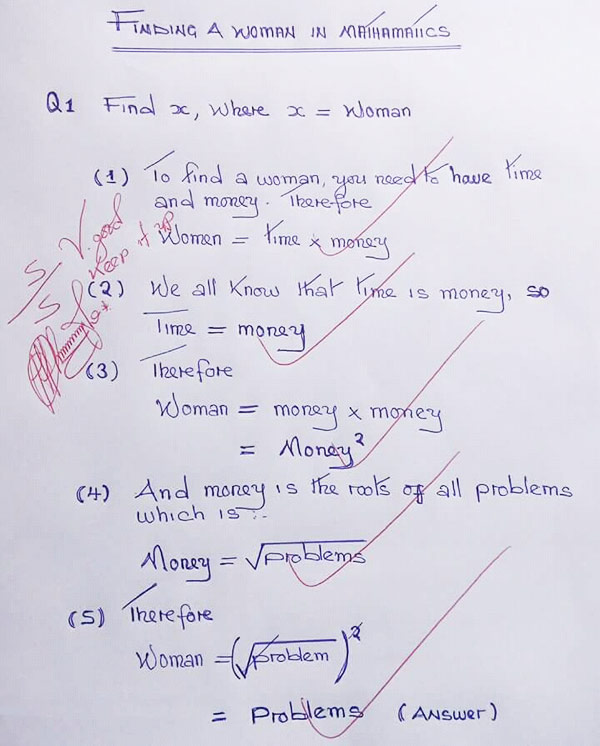 FINDING A WOMAN IN MATHAMATICS
Q1 Find x, where x = Woman
(1) To find a woman, you need to have time
and money. Therefore
Women = time x money
5/5 V. good
Keep it up
(2) We all know that time is money, so
Time = money
(3) Therefore
Woman = money x money
= Money²
(4) And money is the roots of all problems
which is :-
Money = √problems
(5) Therefore
Woman = (√problem)²
= Problems (ANSWER)